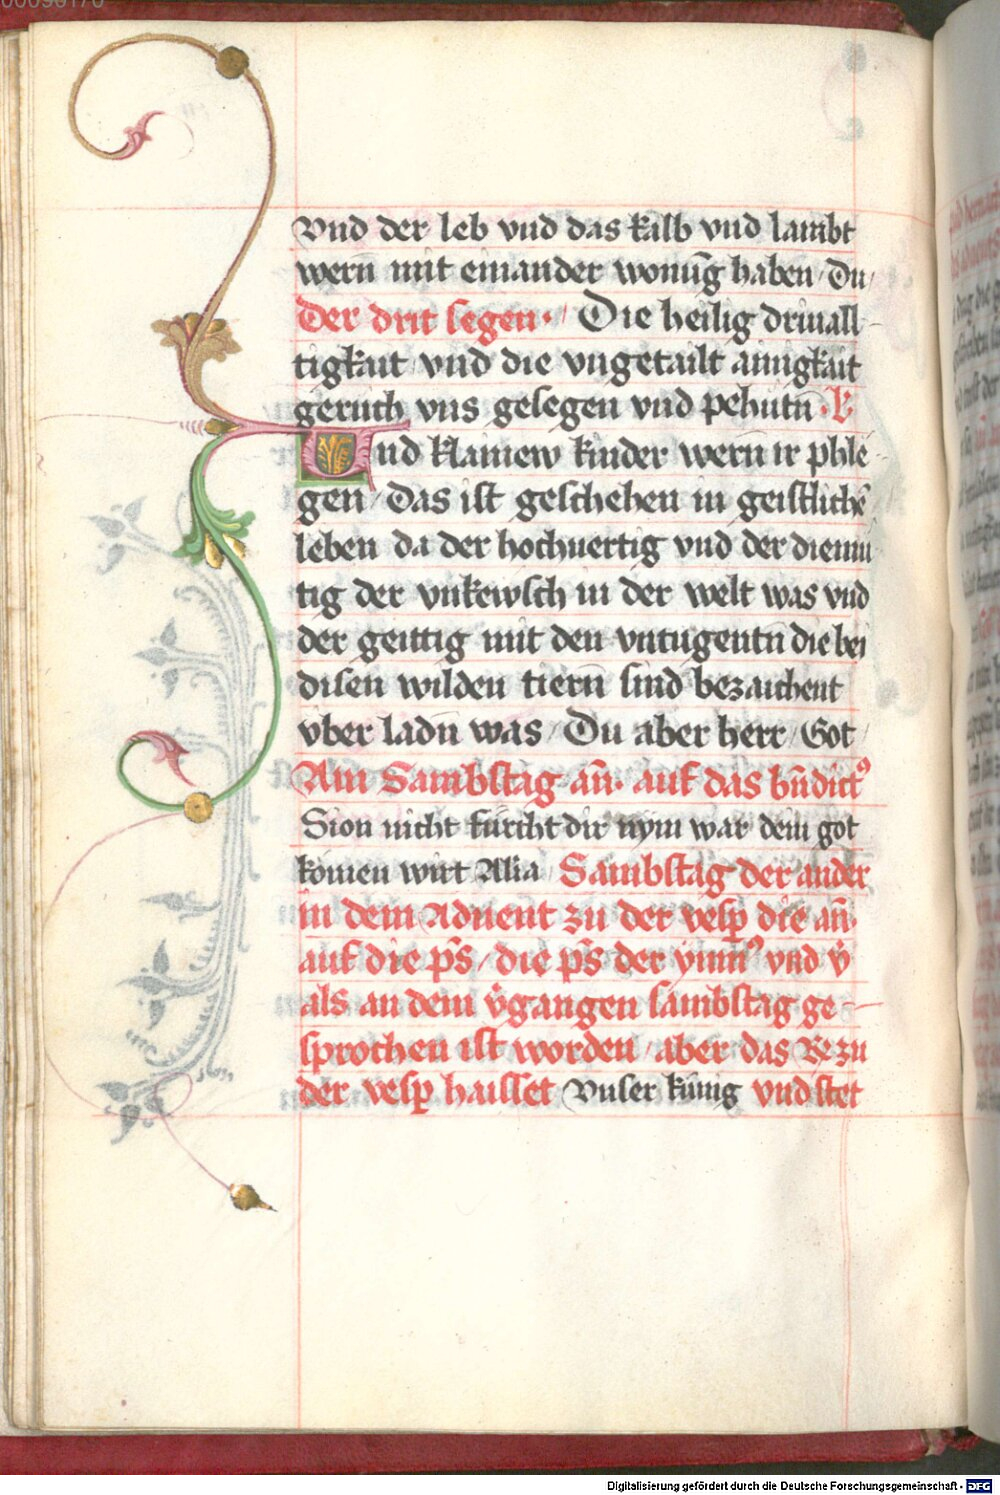 00090170
Vnd der leb vnd das kalb vnd lambt
wern̄ mit einander wonūg haben / Du /
Der drit segen · / Die heilig driuall-
tigkait vnd die vngetailt ainigkait
geruch vns gesegen vnd pehutn̄ · V
Und klainew kinder wern̄ ir phle-
gen / Das ist geschehen in geistlichē
leben da der hochuertig vnd der diemu
tig der vnkewsch in der welt was vnd
der geittig mit den vntugentn̄ die bei
disen wilden tiern̄ sind bezaichent
vber ladn̄ was / Du aber herr / Got /
Am Sambstag an̄ · auf das bn̄dictꝰ
Sion nicht fürcht dir nym war dein got
komen wirt Alia Sambstag der ander
in dem Aduent zu der vesp̄ die an̄ ·
auf die ps̄ / die ps̄ der ymnꝰ vnd v̄
als an dem v̈gangen sambstag ge-
sprochen ist worden / aber das Re zu
der vesp̄ haisset Vnser künig vnd stet
Digitalisierung gefördert durch die Deutsche Forschungsgemeinschaft - DFG